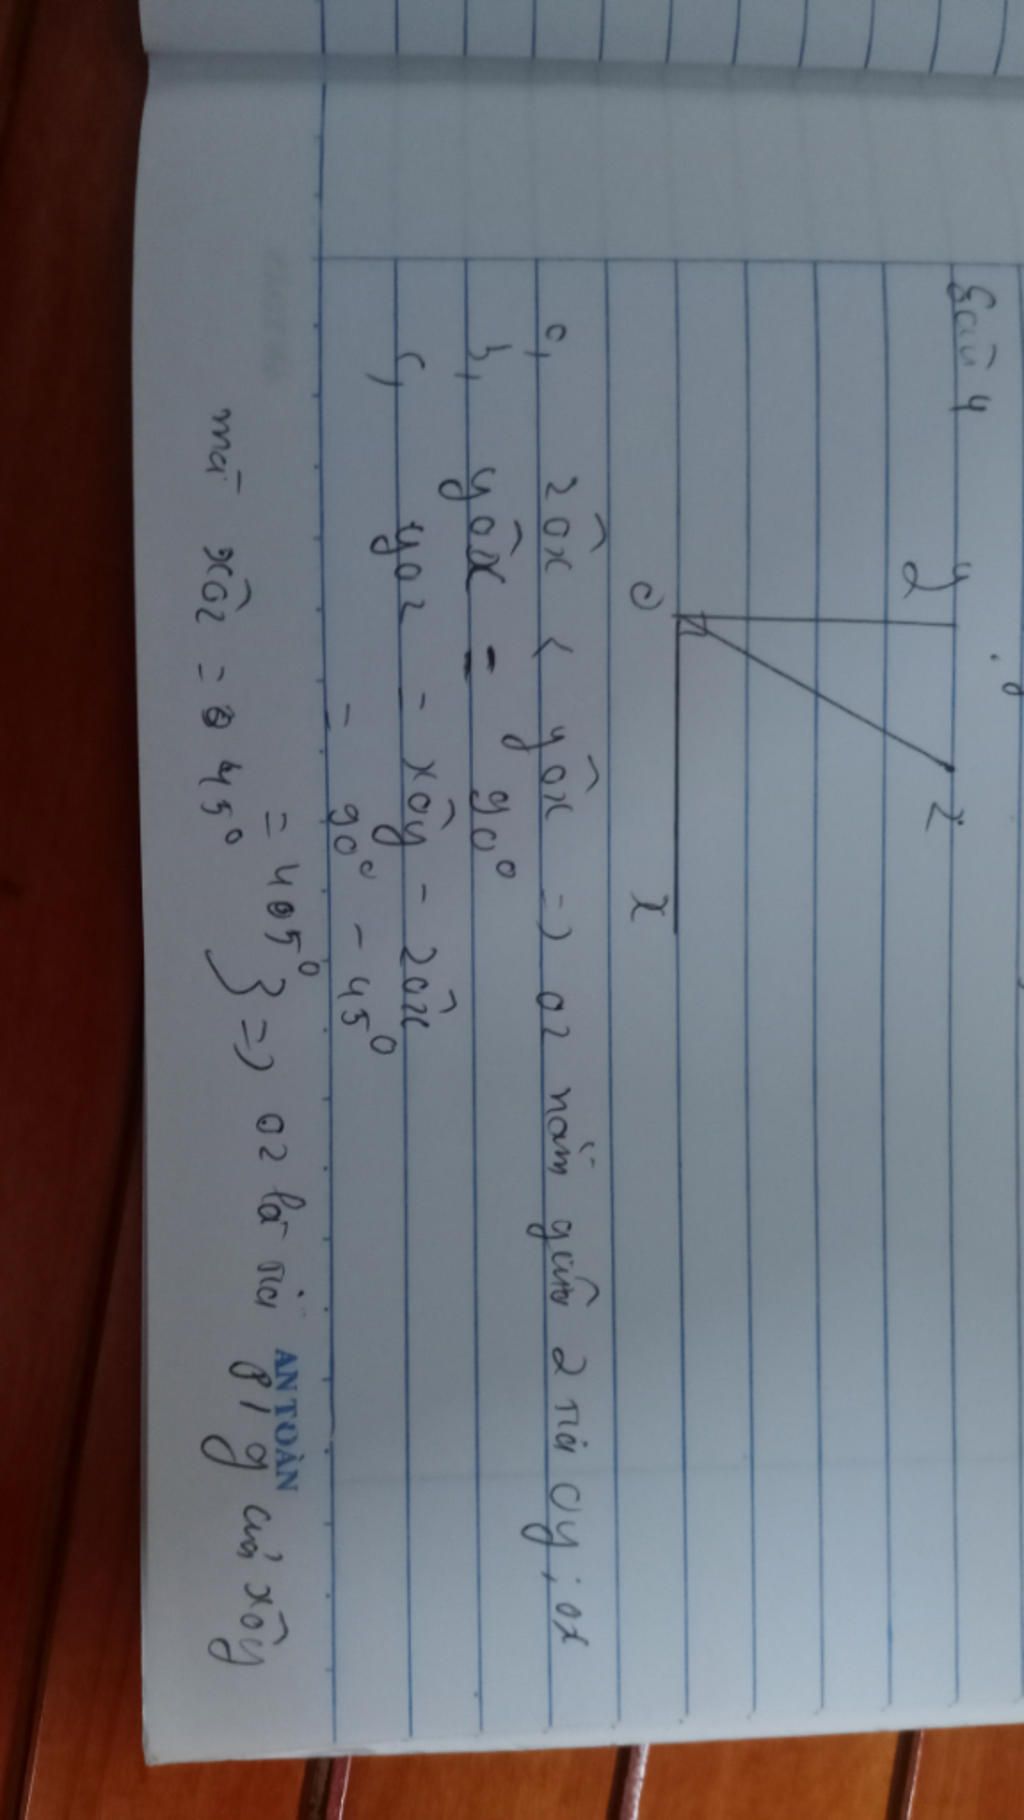 Bài 4
y
z
O
x
a, zôx < yôx => oz nằm giữa 2 tia oy, ox
b, yôx = 90°
c, yoz = xôy - zôx
= 90° - 45°
= 45°
mà xôz = 45° } => oz là tia p/g của xôy
AN TOÀN